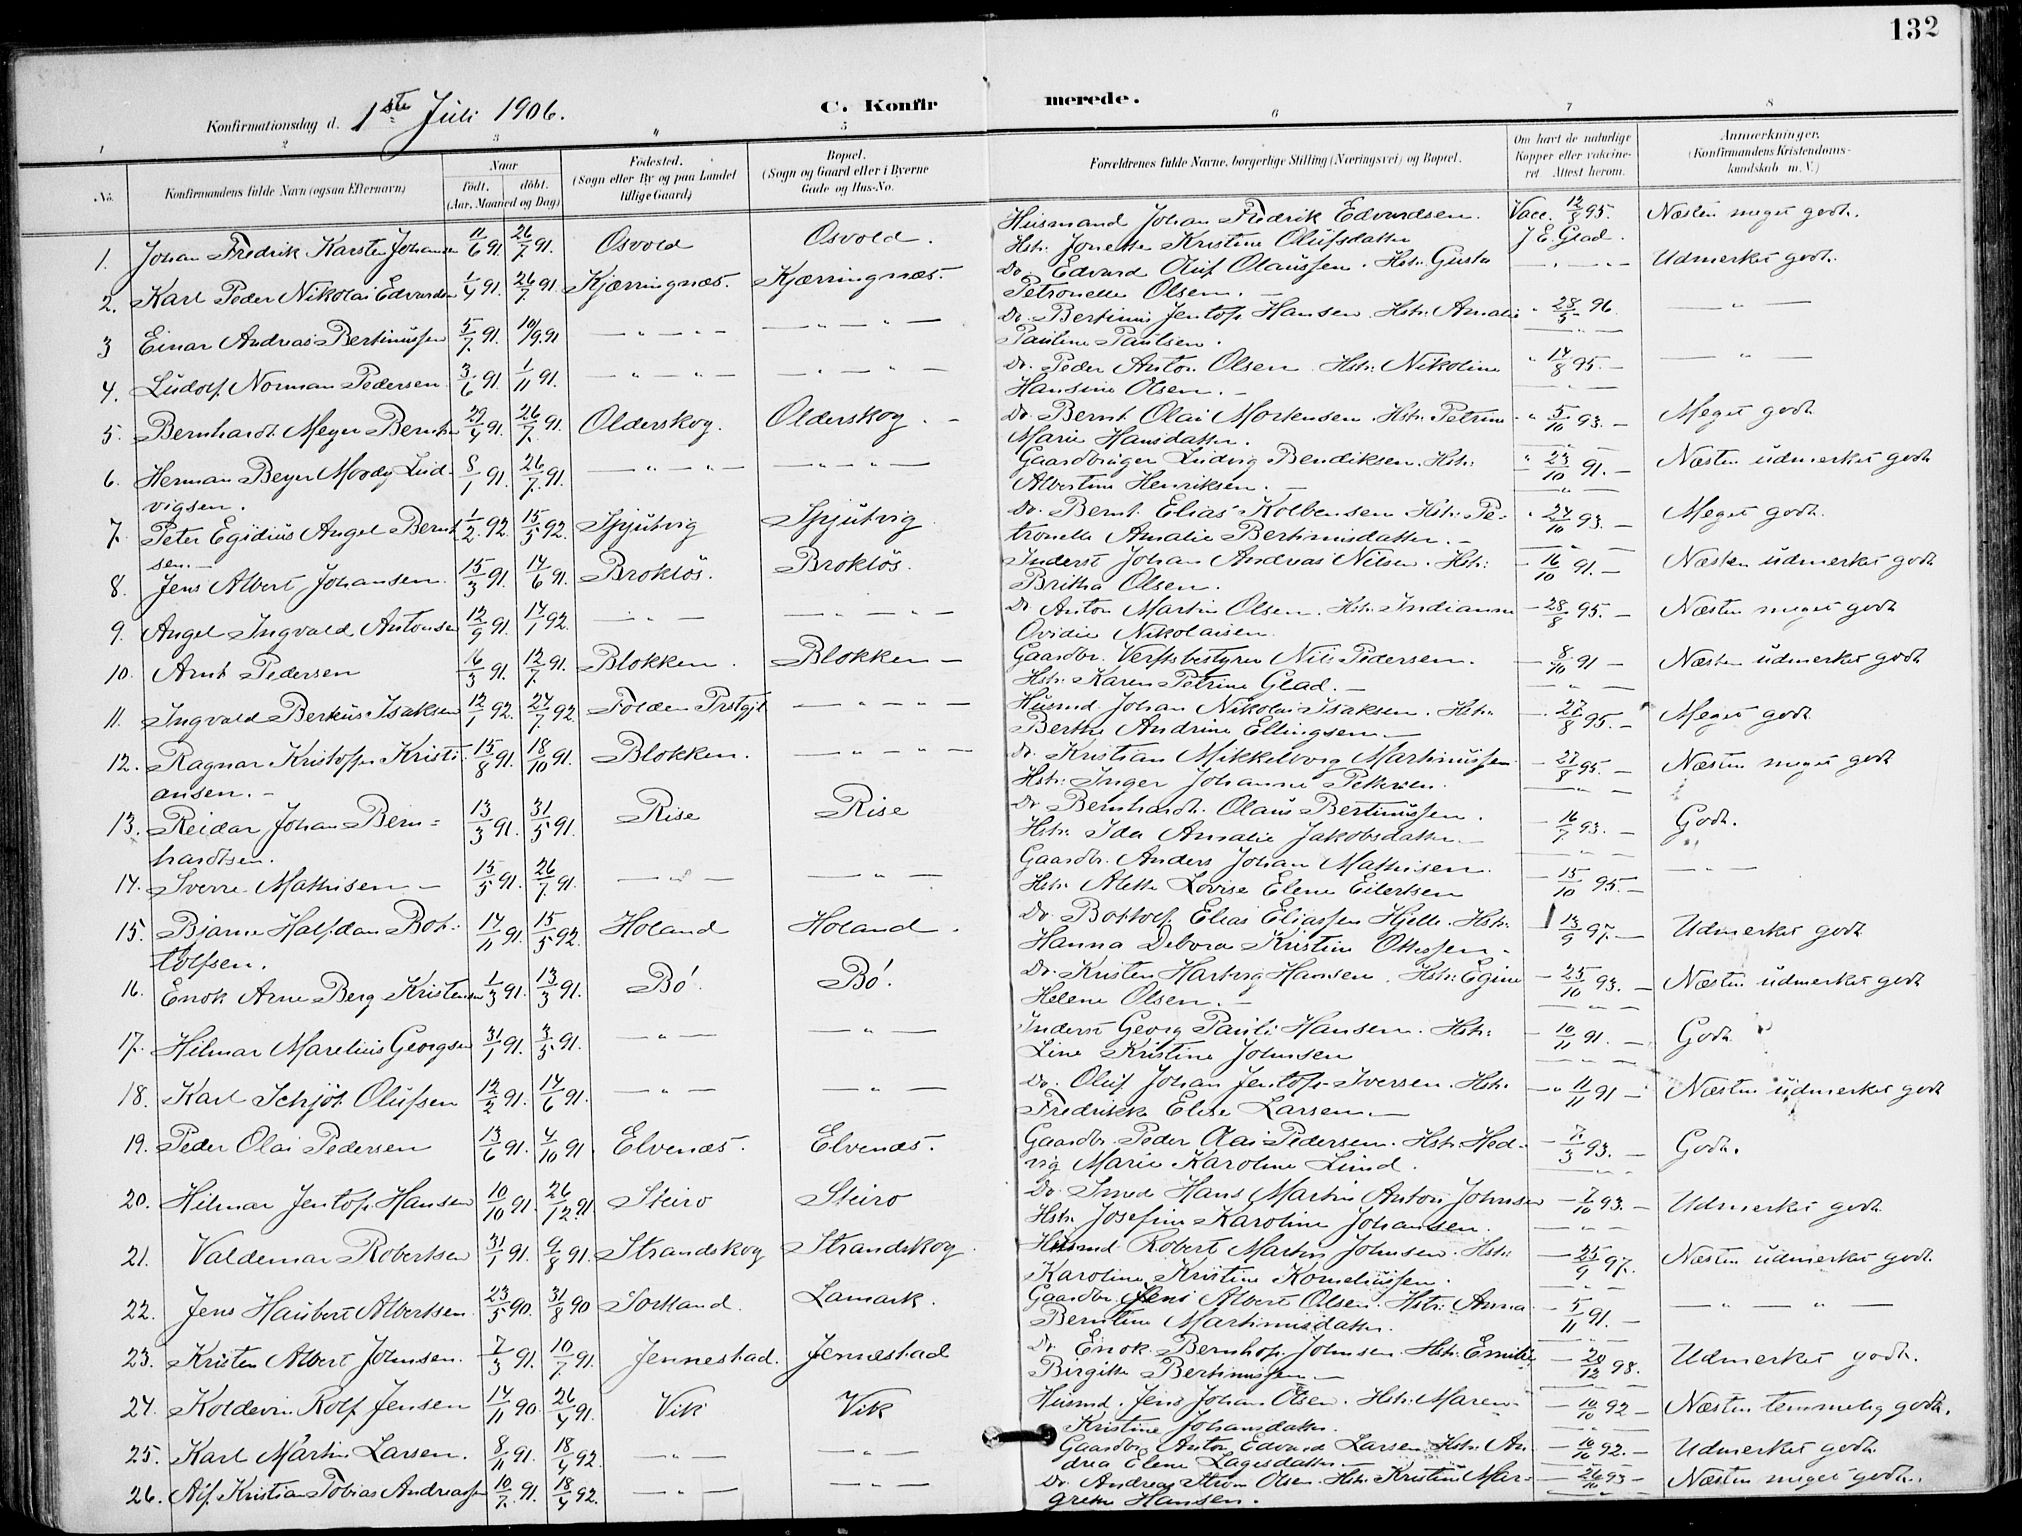 132
Konfirmationsdag d. 1ste Juli 1906. C. Konfirmerede.
1 2 3 4 5 6 7 8
No. Konfirmandens fulde Navn (ogsaa Efternavn) Naar født. døbt. (Aar, Maaned og Dag) Fødested. (Sogn eller By og paa Landet tillige Gaard) Bopæl. (Sogn og Gaard eller i Byerne Gade og Hus-No. Forældrenes fulde Navne, borgerlige Stilling (Næringsvei) og Bopæl. Om havt de naturlige Kopper eller vakcineret. Attest herom. Anmærkninger. (Konfirmandens Kristendomskundskab m. V.)
1. Johan Fredrik Karsten Johansen 11/6 91. 26/7 91. Osvold Osvold. Husmand Johan Fredrik Edvardsen. Vacc. 12/8 95. Næsten meget godt.
Hstr. Jonette Kristine Olufsdatter J E. Glad.
2. Karl Peder Nikolai Edvardsen 1/4 91. 26/7 91. Kjærringnæs. Kjærringnæs. Do. Edvard Oluf Olaussen. Hstr. Gusta — " — Udmerket godt.
Petronelle Olsen. —
3 Einar Andreas Bertinussen 5/7 91. 10/9 91 — " — " — — " — " — Do. Bertinus Jentoft Hansen. Hstr. Amalie " 28/5 96 — " —
Pauline Paulsen.
4. Ludolf Norman Pedersen 3/6 91. 1/11 91. — " — " — — " — " — Do. Peder Anton Olsen. Hstr. Nikoline " 14/8 95. — — " —
Hansine Olsen. —
5. Bernhardt Meyer Berntsen 29/4 91. 26/7 91. Olderskog. Olderskog. — Do. Bernt Olai Mortensen. Hstr. Petrine " 5/10 93. — Meget godt
Marie Hansdatter.
6. Herman Beyer Moody Lud- 8/1 91. 26/7 91. — " — " — — " — " — Gaardbruger Ludvig Bendiksen. Hstr. " 23/10 91. — Næsten udmerket godt
vigsen. Albertine Henriksen. —
7. Peter Egidius Angel Bernt- 1/2 92. 15/5 92. Spjutvig Spjutvig. Do. Bernt Elias Kolbensen Hstr. Pe- " 24/10 93. — Meget godt.
sen. — tronelle Amalie Bertinusdatter. —
8. Jens Albert Johansen. 15/3 91. 14/6 91. Brokløs. Brokløs. Inderst Johan Andreas Nilsen. Hstr. — 16/10 91. — Næsten udmerket godt
Britha Olsen.
9. Angel Ingvald Antonsen 12/9 91. 17/1 92. — " — — " — " — Do Anton Martin Olsen. Hstr. Indianna — 28/8 95. — Næsten meget godt
Ovidie Nikolaisen.
10. Arnt Pedersen 16/3 91. 12/7 91. Blokken. Blokken — Gaardbr. Verftsbestyrer Nils Pedersen. — 8/10 91 — Næsten udmerket godt
Hstr. Karen Petrine Glad. —
11. Ingvald Berkus Isaksen 12/1 92. 24/7 92. Folden Prstgjl — " — " — Husmd. Johan Nikolai Isaksen. Hstr. — 27/8 95. — Meget godt
Berthe Andrine Ellingsen —
12. Ragnar Kristoffer Kristi- 15/8 91. 18/10 91. Blokken. — " — " — Do. Kristian Mikkelborg Martinussen — 27/8 95. — Næsten meget godt
ansen. — Hstr. Inger Johanne Pettersen.
13. Reidar Johan Bern- 13/3 91. 31/5 91. Rise Rise Do Bernhardt Olaus Bertinussen. — 16/7 93. — Godt.
hardtsen. Hstr. Ida Amalie Jakobsdatter. —
14. Sverre Mathisen — 15/5 91. 26/7 91. — " — — " — Gaardbr. Anders Johan Mathisen. — 15/10 95. — — " —
Hstr. Alette Lovise Elene Eilertsen
15. Bjarne Halfdan Bot- 14/11 91. 15/5 92. Holand Holand. Do. Bottolf Elias Eliassen Hjelle. Hstr. — 13/9 97. — Udmerket godt
tolfsen. Hanna Debora Kristine Ottessen —
16. Enok Arne Berg Kristensen 1/3 91. 13/3 91. Bø. Bø. Do. Kristen Hartvig Hansen. Hstr. Egine — 25/10 93. — Næsten udmerket godt
Helene Olsen. —
17. Hilmar Marelius Georgsen 31/1 91. 3/5 91. — " — — " — Inderst Georg Pauli Hansen. Hstr. — 10/11 91. — Godt
Line Kristine Johnsen
18. Karl Schjøt Olufsen 12/2 91. 14/6 91. — " — — " — Do. Oluf Johan Jentoft Iversen. Hstr. — " 11/11 91 — Næsten udmerket godt
Fredrikke Elise Larsen. —
19. Peder Olai Pedersen 13/6 91. 4/10 91. Elvenæs. Elvenæs. Gaardbr. Peder Olai Pedersen. Hstr. Hed- — 7/3 93. — Godt.
vig Marie Karoline Lund.
20. Hilmar Jentoft Hansen 10/10 91. 26/12 91. Steiro Steiro Do. Smed Hans Martin Anton Johnsen — 7/10 93. — Udmerket godt
Hstr. Josefine Karoline Johansen.
21. Valdemar Robertsen 31/1 91. 9/8 91. Strandskog Strandskog. Husmd. Robert Martin Johnsen. Hstr. — 25/9 97. Næsten udmerket godt.
Karoline Kristine Korneliussen.
22. Jens Haubert Albertsen. 23/5 90. 31/8 90 Sortland. Lamark. Gaardbr. Jens Albert Olsen. Hstr. Anna — 5/11 91. — — " — " —
Berntine Martinusdatter.
23. Kristen Albert Johnsen. 7/3 91. 10/7 91. Jennestad. Jennestad Do. Enok Bernhoft Johnsen. Hstr. Emilie — 20/12 98. Udmerket godt.
Birgitte Bertinussen —
24. Koldevin Rolf Jensen 14/11 90. 26/4 91. Vik Vik Husmd. Jens Johan Olsen. Hstr. Maren — 10/10 92 — Næsten temmelig godt.
Kristine Johansdatter.
25. Karl Martin Larsen. 8/11 91. 18/4 92. — " — — " — Gaardbr. Anton Edvard Larsen Hstr. An- — 10/10 92. — Udmerket godt
drea Elene Lagesdatter —
26. Alf Kristian Tobias Andreassen 10/7 91. 18/4 92. — " — — " — Do. Andreas Strøm Olsen. Hstr. Kristine Mar- — 26/10 93 — Næsten meget godt.
grethe Hansen.